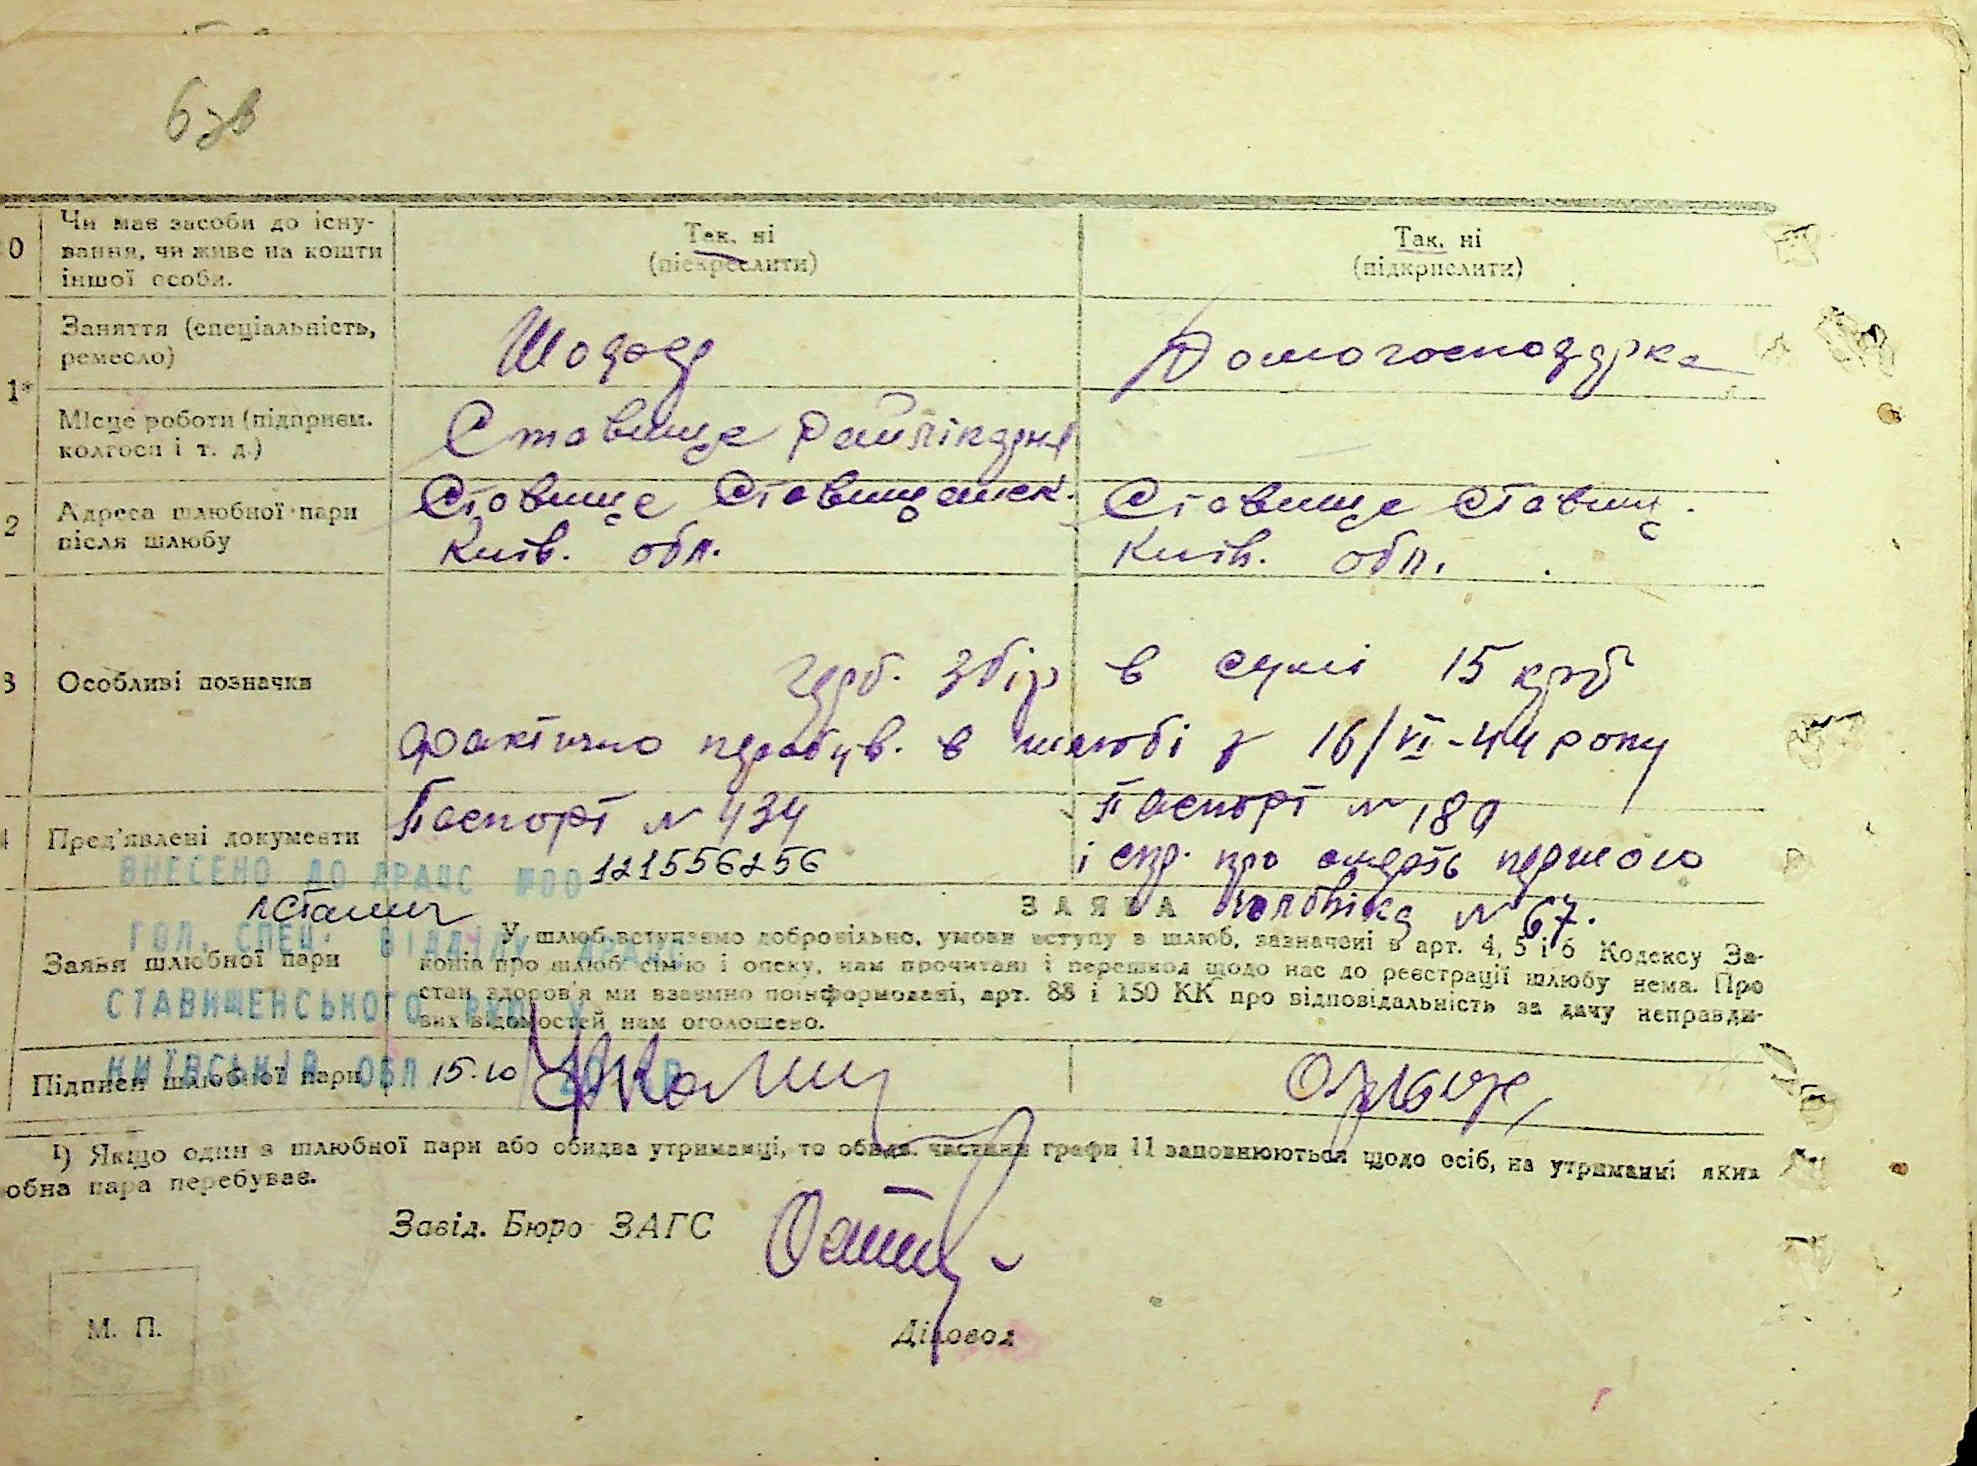 6 зв
0 Чи має засоби до існу-
вання, чи живе на кошти
іншої особи.
Так, ні
(підкреслити)
Так, ні
(підкрислити)
1* Заняття (спеціальність,
ремесло)
Шофер
Домогосподарка
Місце роботи (підприєм.
колгосп і т. д.)
Ставище Райлікарня
2 Адреса шлюбної пари
після шлюбу
Ставище Ставищанськ.
Київ. обл.
Ставище Ставищ.
Київ. обл.
3 Особливі позначки
герб. збір в сумі 15 крб
фактично перебув. в шлюбі з 16/VI-44 року
4 Пред'явлені документи
Паспорт № 434
121556256
Паспорт №
і спр. про смерть першого
чоловіка № 67.
ВНЕСЕНО ДО ДРАЦС №00
ГОЛ. СПЕЦ. ВІДДІЛУ
СТАВИЩЕНСЬКОГО
КИЇВСЬКІЙ ОБЛ
15.10
ЗАЯВА
Заява шлюбної пари
У шлюб вступаємо добровільно, умови вступу в шлюб, зазначені в арт. 4, 5 і 6 Кодексу За-
конів про шлюб сім'ю і опеку, нам прочитані і перешкод щодо нас до реєстрації шлюбу нема. Про
стан здоров'я ми взаємно поінформовані, арт. 88 і 150 КК про відповідальність за дачу неправди-
вих відомостей нам оголошено.
Підписи шлюбної пари
¹) Якщо один з шлюбної пари або обидва утриманці, то обидві частини графи 11 заповнюються щодо осіб, на утриманні яких
юбна пара перебуває.
Завід. Бюро ЗАГС
М. П.
Діловод